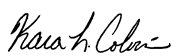 Kara L. Colvin